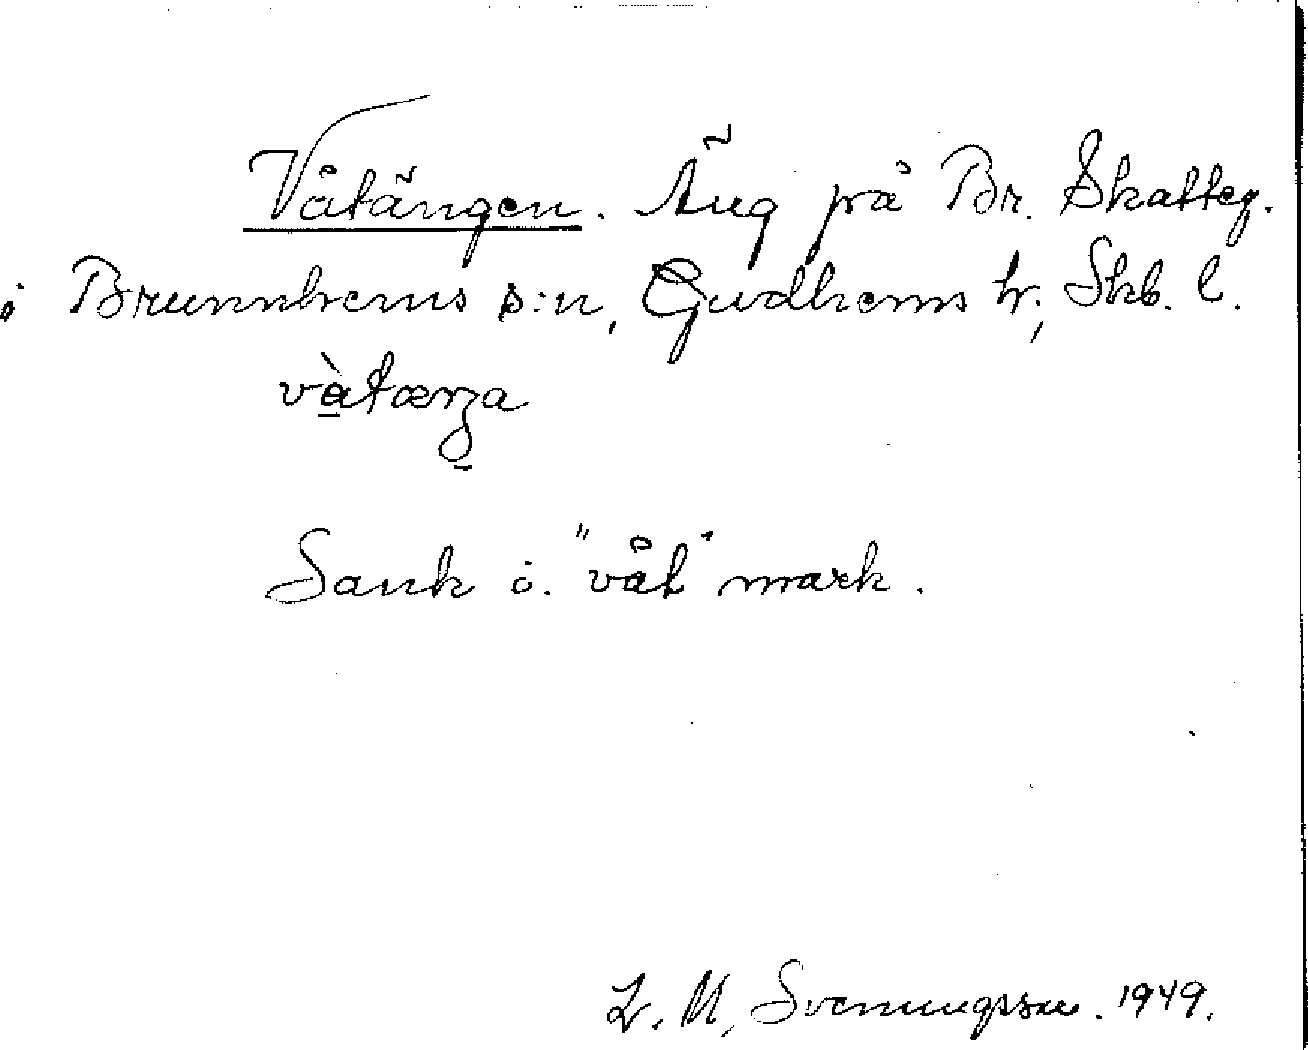 Våtängen. Äng på Br. Skatteg.
i Brunnhems s:n, Gudhems h., Skb. l.
våtæŋa
Sank ö. "våt" mark.
L. M. Svenungsson. 1949.